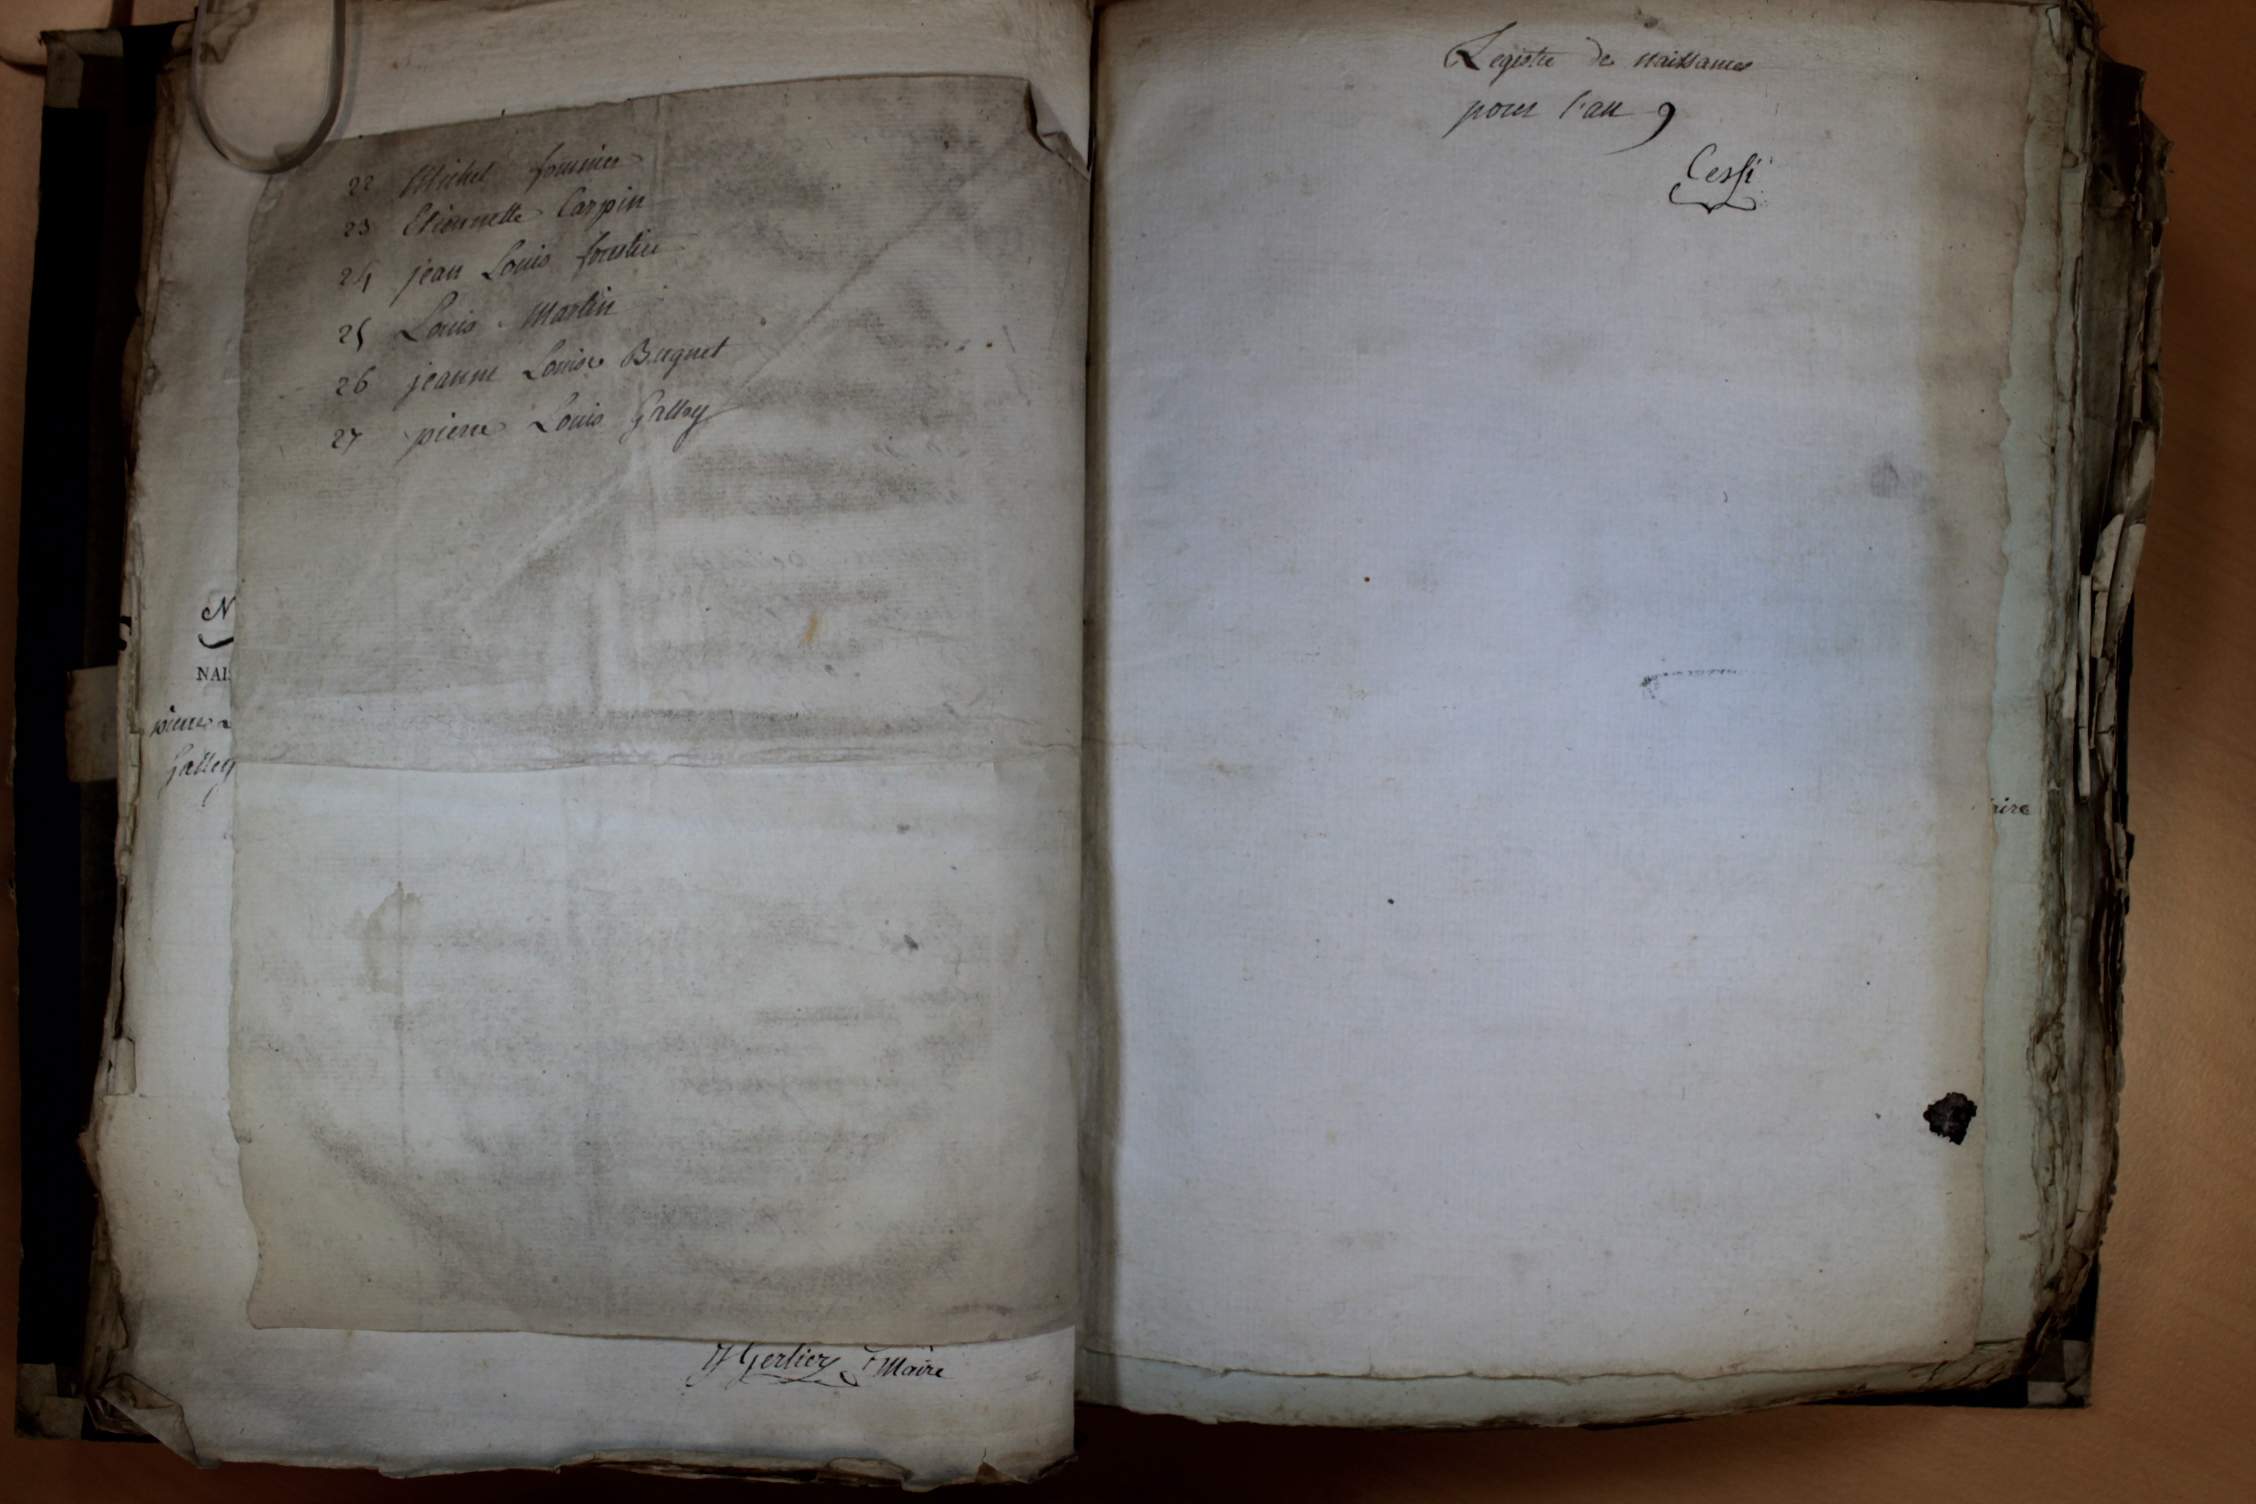 22 Michel fournier
23 Etiennette Carpin
24 jean Louis forestier
25 Louis Martin
26 jeanne Louise Buquet
27 pierre Louis Galley
N
NAIS
pierre L
Galley
Gerlier Maire
Registre de naissances
pour l'an 9
Cessi
aire